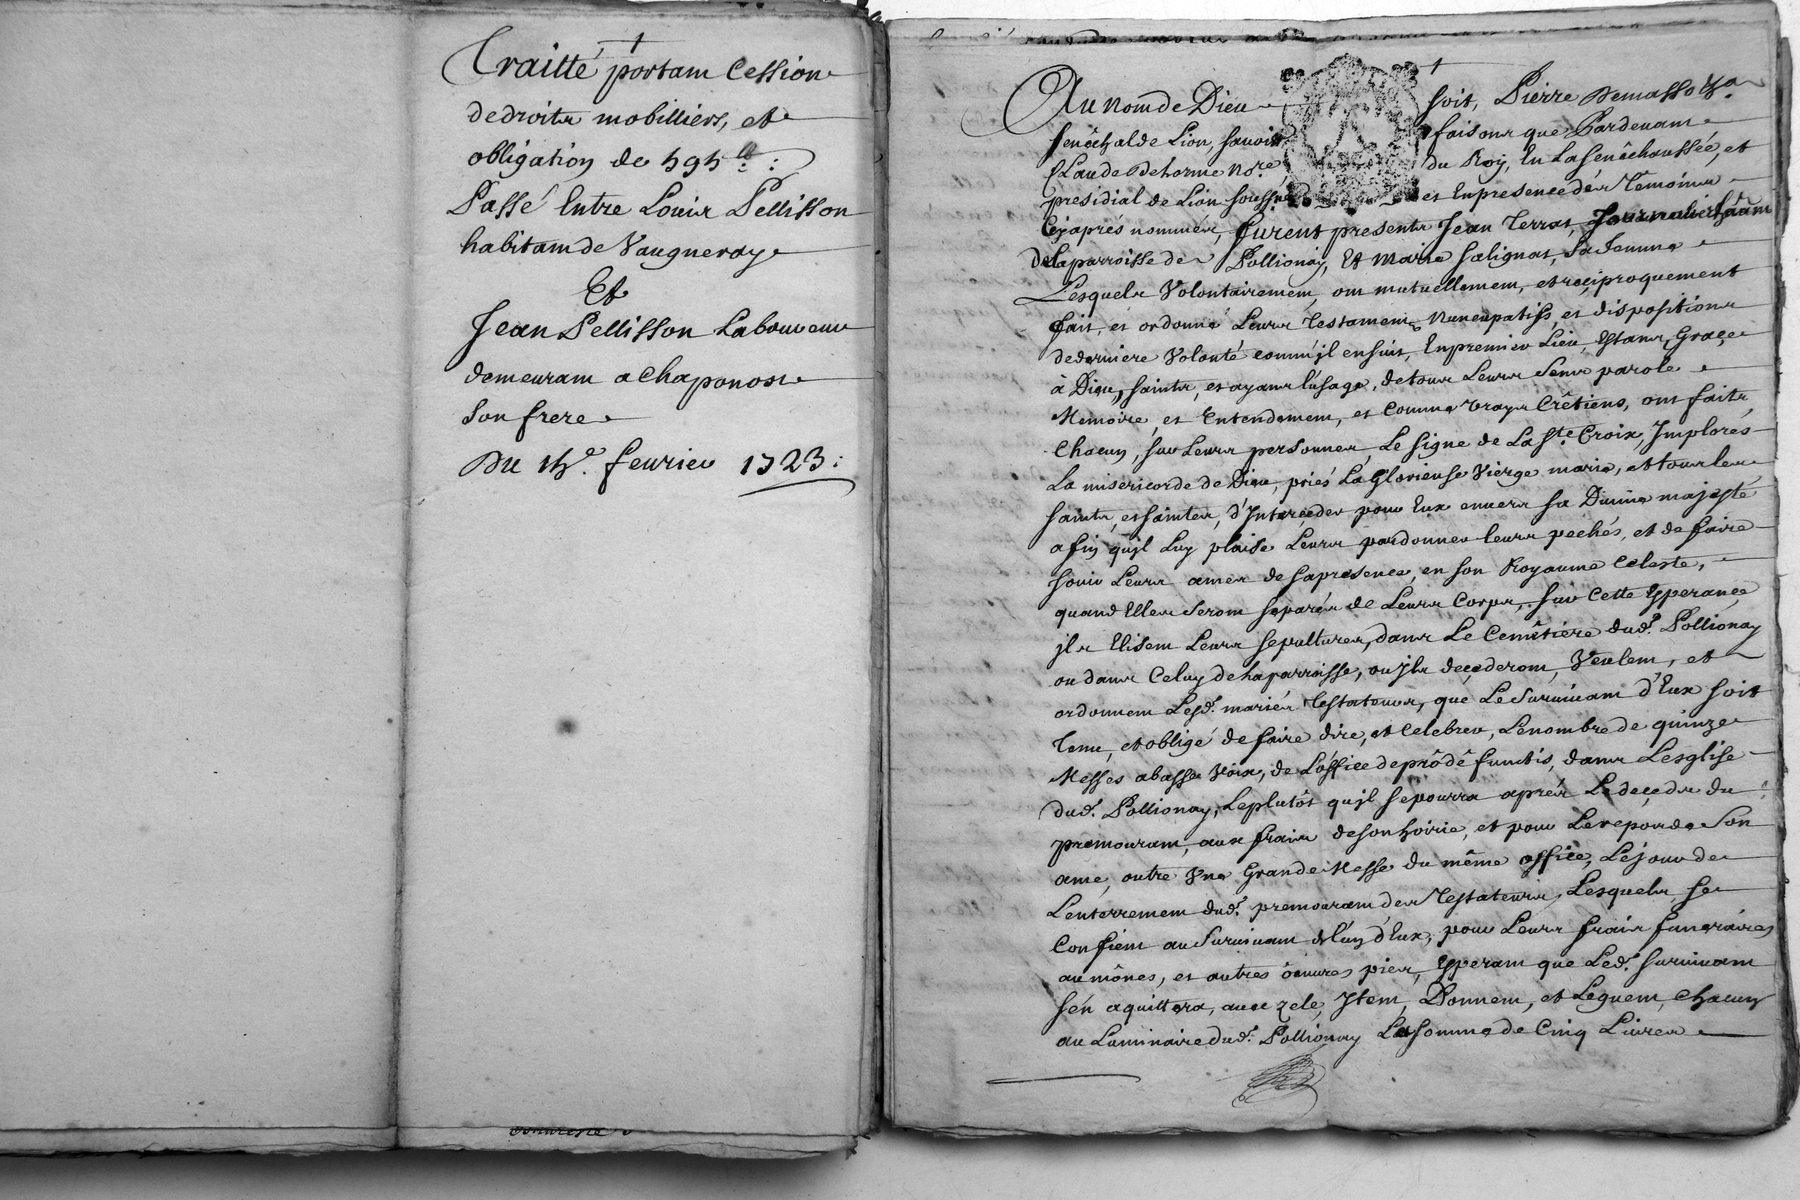 Traitté portant Cession
de droits mobilliers, et
obligation de 595 ₶ :
Passé Entre Louis Pellisson
habitant de Vaugneray
Et
Jean Pellisson Laboureur
demeurant a Chaponost
Son frere
Du 15e. feurier 1723 :
Au Nom de Dieu soit, Pierre Demasso
senêchal de Lion, sauoir faisons que Pardeuant
Claude Delorme No.re du Roy, En La senêchaussée, et
presidial de Lion soussné et En presence des Temoins
Cy aprés nommés, furent presents Jean Terras, Journalier habitant
de La parroisse de Pollionay, Et Marie Salignat, Sa femme
Lesquels Volontairement, ont mutuellement, et reçiproquement
fait, et ordonné Leurs Testament Nuncupatifs, et dispositions
de derniere Volonté comm'jl ensuit, En premier Lieu, Estans, Graçe
à Dieu, saints, et ayans l'usage, de tous Leurs Sens parole
Memoire, et Entendement, et Comme Vrays Crêtiens, ont faits
Chacun, sur Leurs personnes, Le signe de La Ste Croix, Implorés
La misericorde de Dieu, priés La Glorieuse Vierge marie, et tous les
saints, et saintes, d'Interçeder pour Eux enuers sa Diuine majesté
afin qu'jl Luy plaise Leurs pardonner leurs pechés, et de faire
Jouir Leurs ames de sa presence, en son Royaume Celeste,
quand Elles Seront separés de Leurs Corps, sur Cette Esperançe
jls Elisent Leurs sepultures, dans Le Cemêtiere dud. Pollionay
ou dans Celuy de la parroisse, ou jls deçederont, Veulent, et
ordonnent Lesd. mariés Testateurs, que Le Suruiuant d'Eux soit
Tenu, et obligé de faire dire, et Celebrer, Le nombre de quinze
Messes a basse Voix, de L'office de prô dê functis, dans L'esglise
dud. Pollionay, Le plutôt qu'jl se pourra aprés Le deçeds du
premourant, aux frais de son hoirie, et pour Le repos de Son
ame, outre Vne Grande Messe du même office, Le jour de
L'enterrement dud. premourant des Testateurs, Lesquels se
Confient au Suruiuant d'Eux, pour Leurs frais funeraires
aumônes, et autres oeuures pies, Esperant que Led. suruiuant
s'en aquittera, auec zele, Item, Donnent, et Leguent, Chacun
au Luminaire dud. Pollionay La somme de Cinq Liures